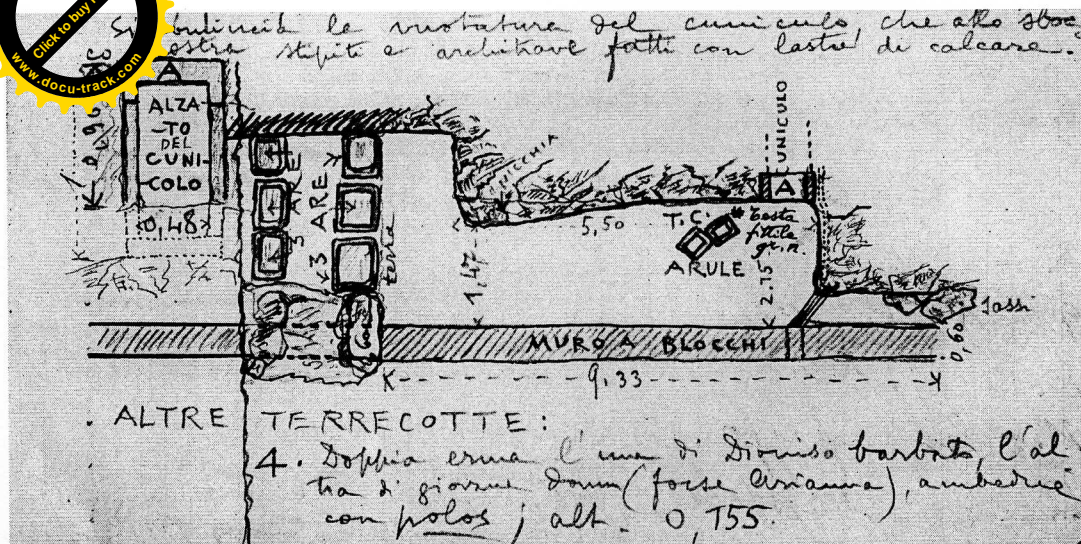 Click to buy
www.docu-track.com
la vuotatura del cunicolo, che allo
stipiti e architrave fatti con lastre di calcare.
A
ALZA-
TO
DEL
CUNI-
COLO
0,48
0,96
3 ARE
3 ARE
terra
NICCHIA
5,50
1,47
T.C.
testa
fittile
gr. n.
ARULE
CUNICULO
A
2.15
Sassi
0,60
MURO A BLOCCHI
9,33
ALTRE TERRECOTTE:
4. Doppia erma l'una di Dioniso barbato, l'al-
tra di giovane donna (forse Arianna), ambedue
con polos; alt. 0,155.